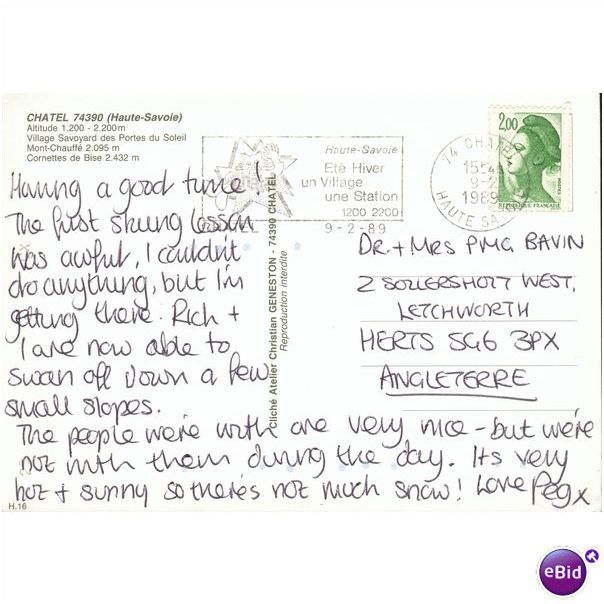 CHATEL 74390 (Haute-Savoie)
Altitude 1.200 - 2.200m
Village Savoyard des Portes du Soleil
Mont-Chauffé 2.095 m
Cornettes de Bise 2.432 m
Haute-Savoie
Eté Hiver
un Village
une Station
1200 2200
9-2-89
74 CHATEL
15H45
9-2
1989
HAUTE SAVOIE
2,00
REPUBLIQUE FRANÇAISE
Having a good time!
The first skiing lesson
was awful, I couldn't
do anything, but I'm
getting there. Rich +
I are now able to
swan off down a few
small slopes.
The people we're with are very nice - but we're
not with them during the day. Its very
hot + sunny so there's not much snow! Love Peg x
Cliché Atelier Christian GENESTON - 74390 CHATEL
Reproduction interdite
DR. + MRS PMG BAVIN
2 SOLLERSHOTT WEST,
LETCHWORTH
HERTS SG6 3PX
ANGLETERRE
H.16
eBid